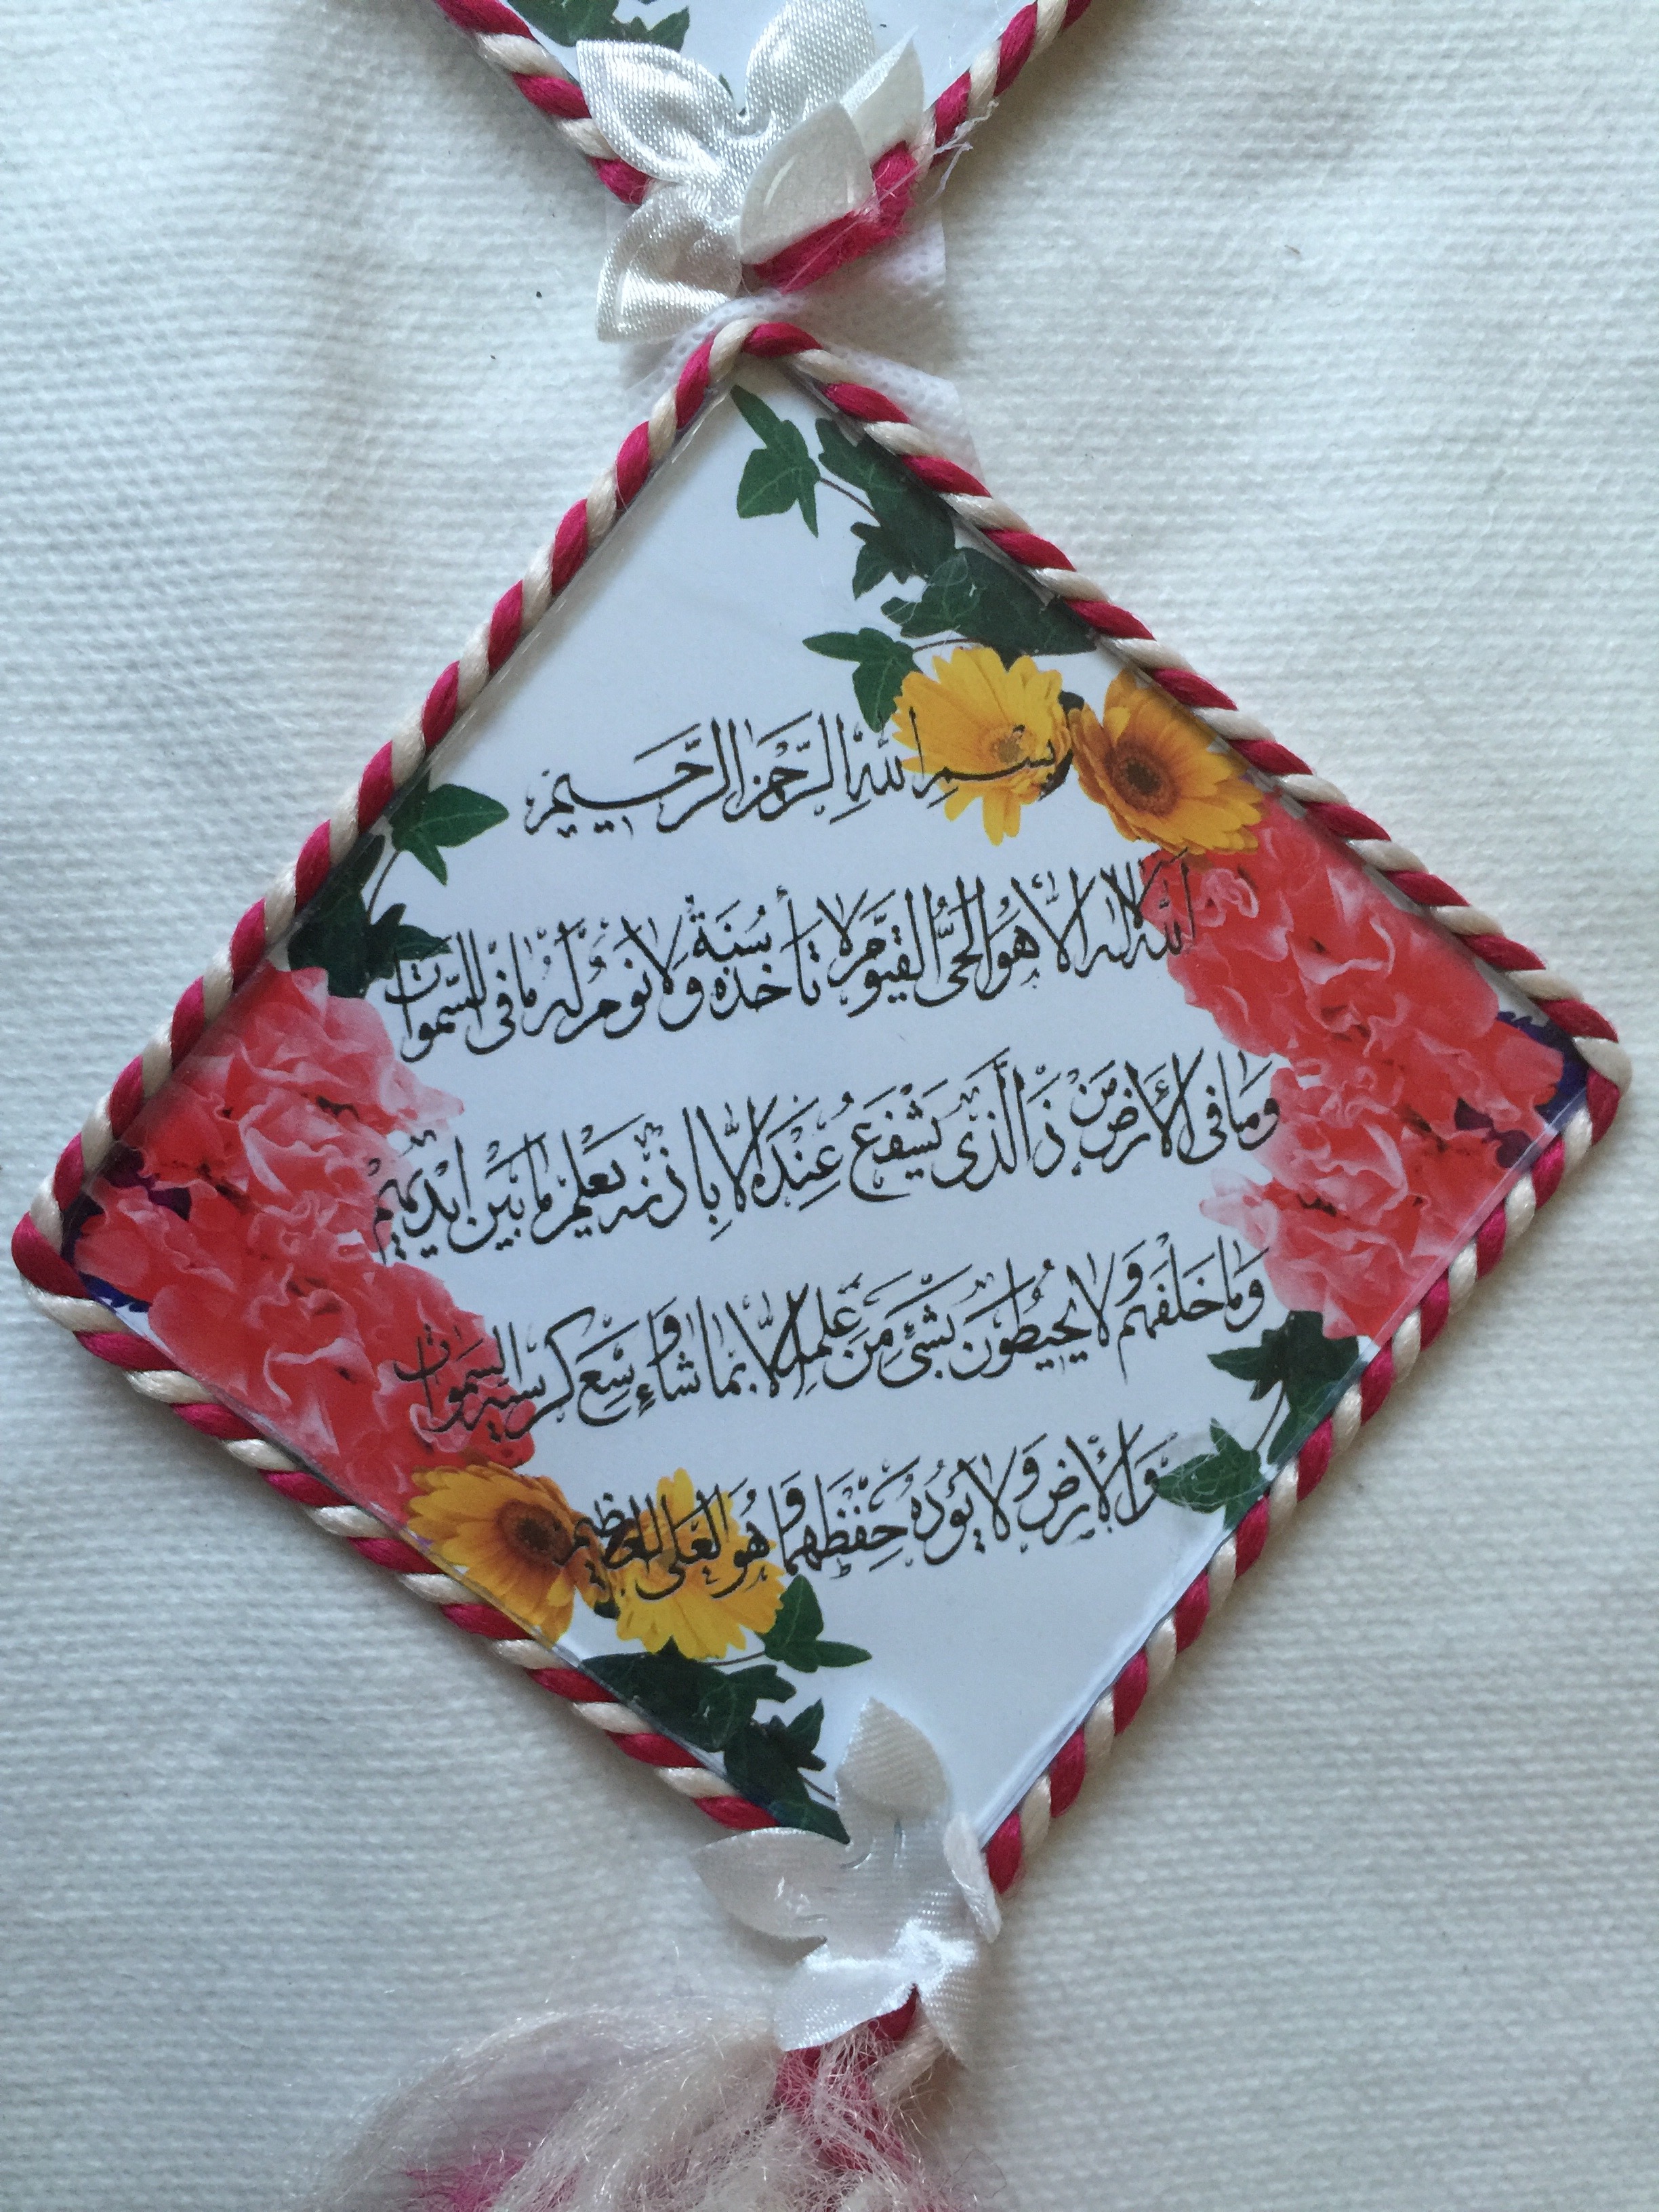 بسم الله الرحمن الرحيم
الله لا اله الا هو الحي القيوم لا تأخذه سنة ولا نوم له ما في السموات
وما في الأرض من ذا الذي يشفع عنده الا باذنه يعلم ما بين ايديهم
وما خلفهم ولا يحيطون بشئ من علمه الا بما شاء وسع كرسيه السموات
والأرض ولا يؤده حفظهما وهو العلي العظيم